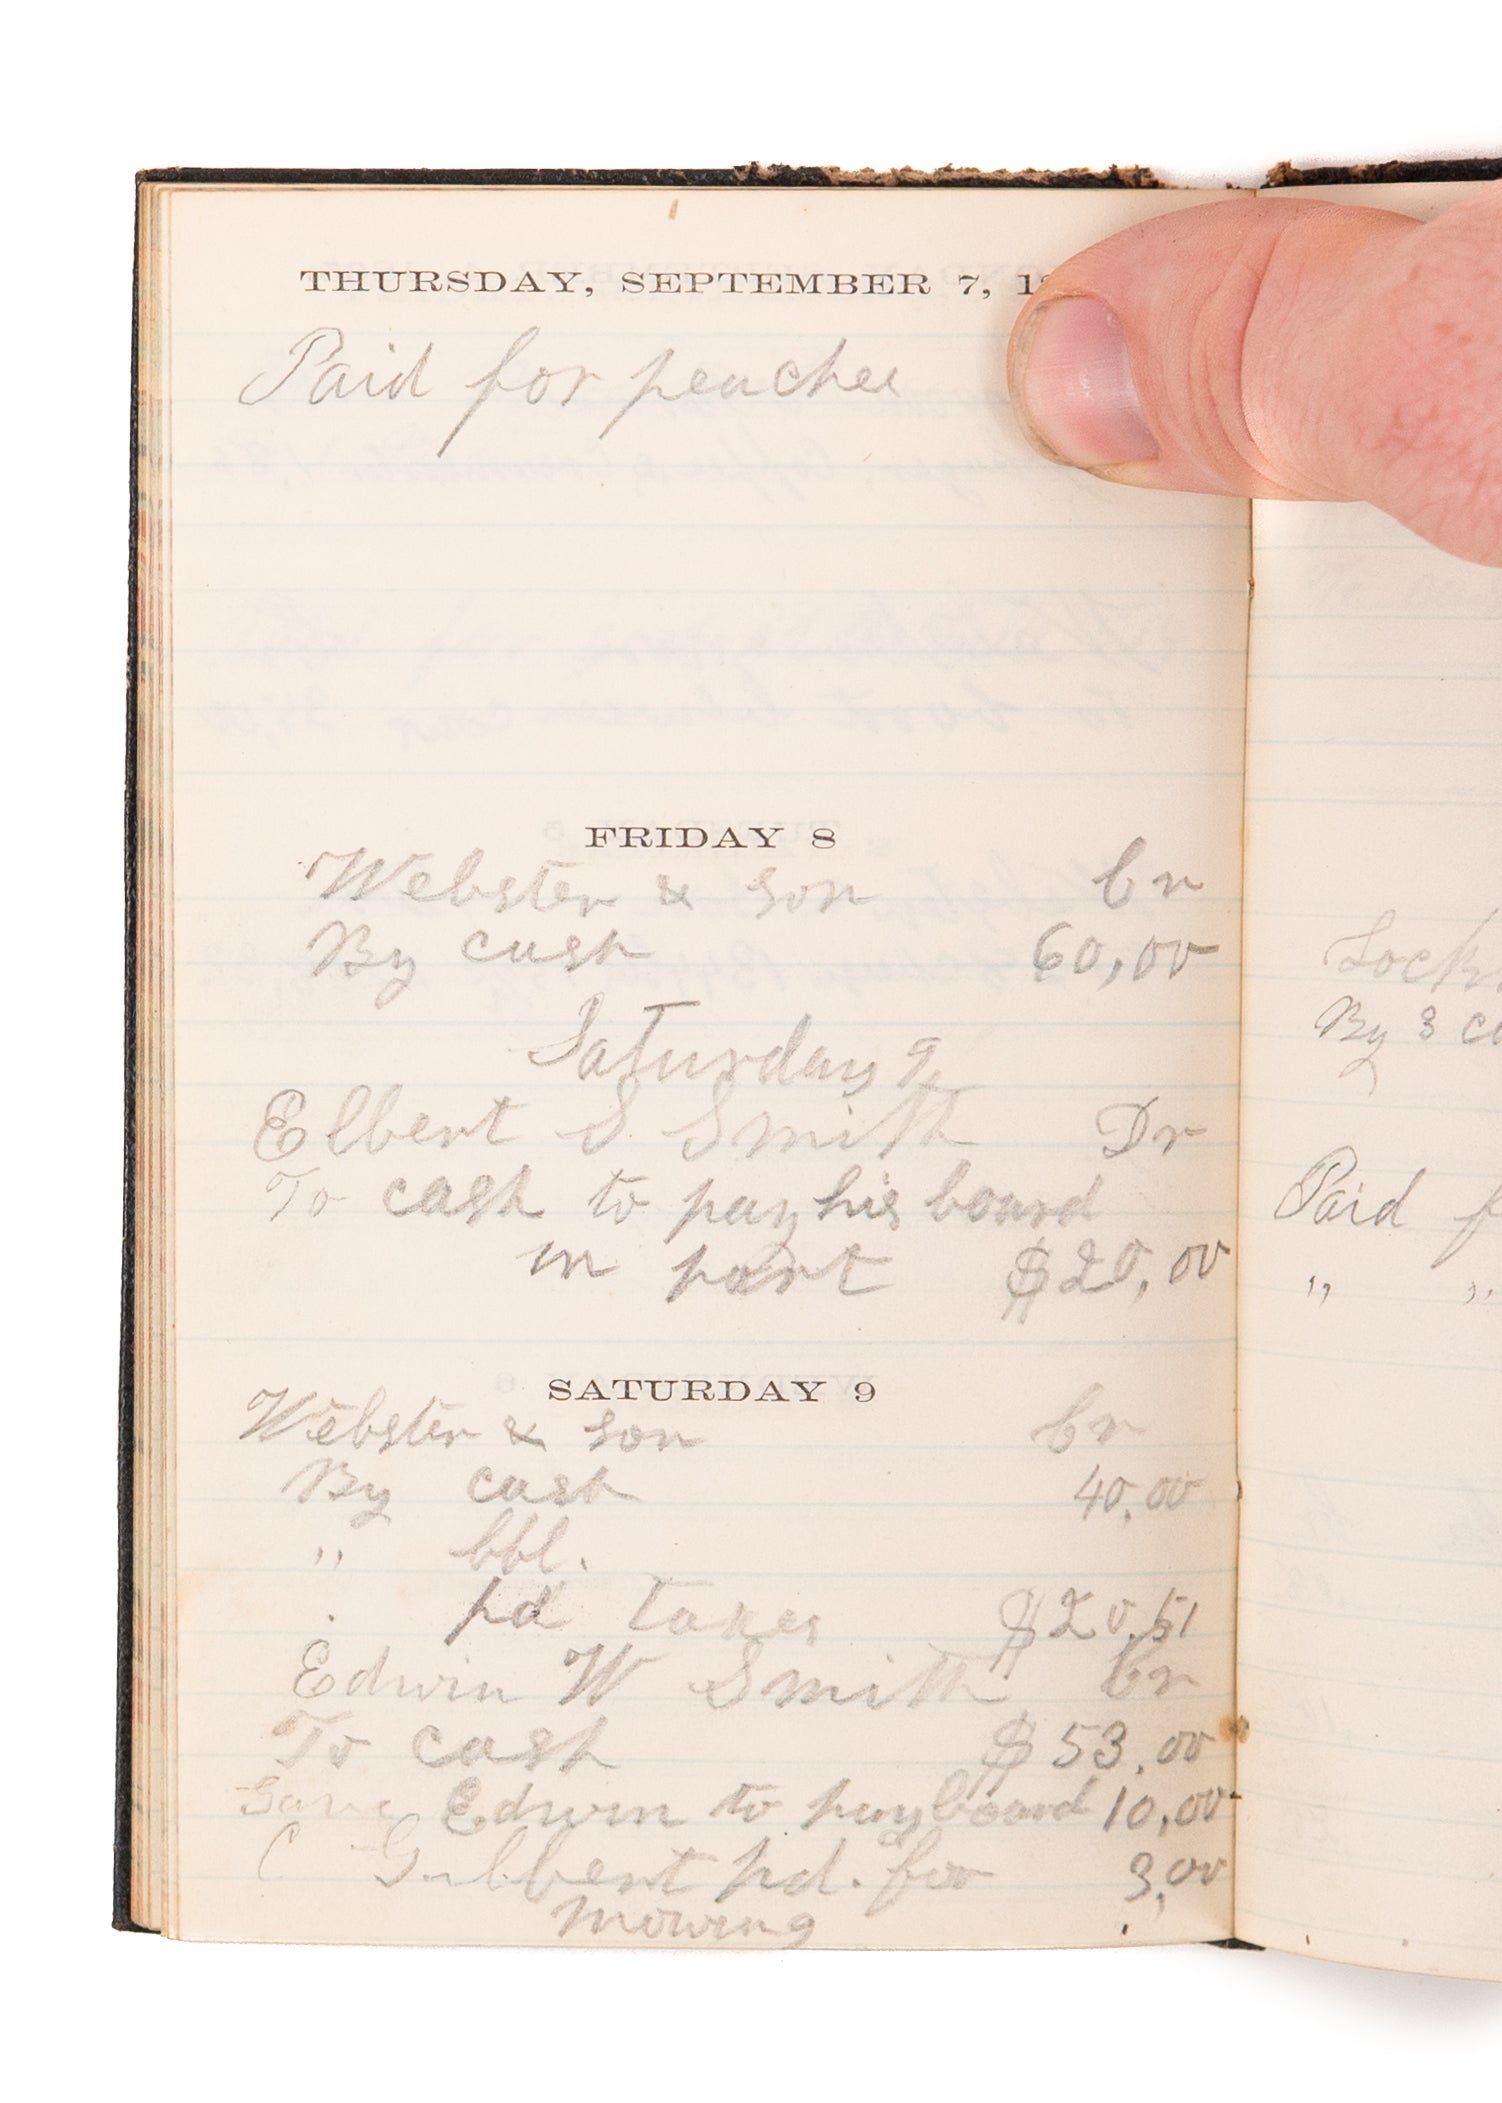 THURSDAY, SEPTEMBER 7, 1
Paid for peaches
FRIDAY 8
Webster & son Cr
By cash 60,00
Saturday 9
Elbert S Smith Dr
To cash to pay his board
in part $20,00
SATURDAY 9
Webster & son Cr
By cash 40,00
" bbl.
pd taxes $20.51
Edwin W Smith Cr
To cash $53,00
Gave Edwin to pay board 10,00
C Gilbert pd. for 3,00
mowing
Lock
By 3
Paid f
" "